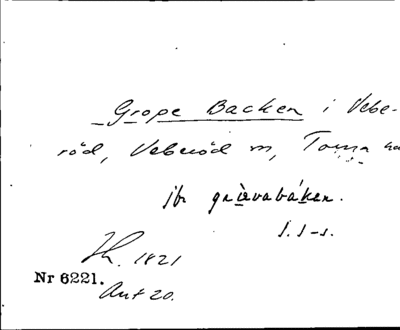 Grope Backen i Vebe-
röd, Veberöd sn, Torna hd
jfr grævabákan.
I. I-s.
Th. 1821
Nr 6221.
Akt 20.